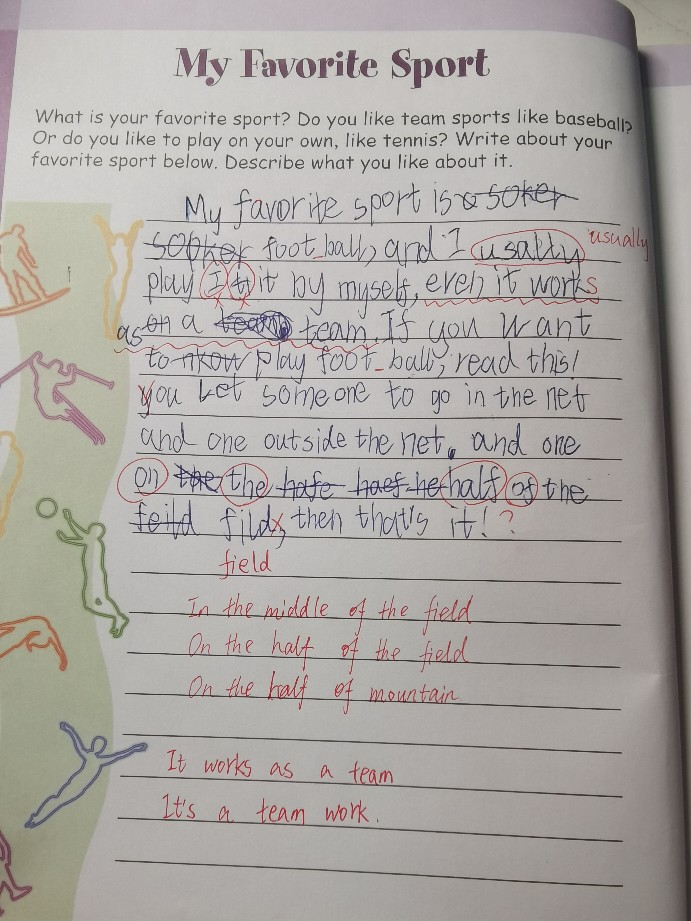 My Favorite Sport
What is your favorite sport? Do you like team sports like baseball?
Or do you like to play on your own, like tennis? Write about your
favorite sport below. Describe what you like about it.
My favorite sport is a soker
sooker foot_ball, and I usallty usually
play I t it by myself, even it works
as on a team team. If you want
to nkow play foot_ball, read this!
you Let someone to go in the net
and one outside the net, and one
on the the hafe haef he half of the
feild fild, then that's it! ?
field
In the middle of the field
On the half of the field
On the half of mountain
It works as a team
It's a team work.